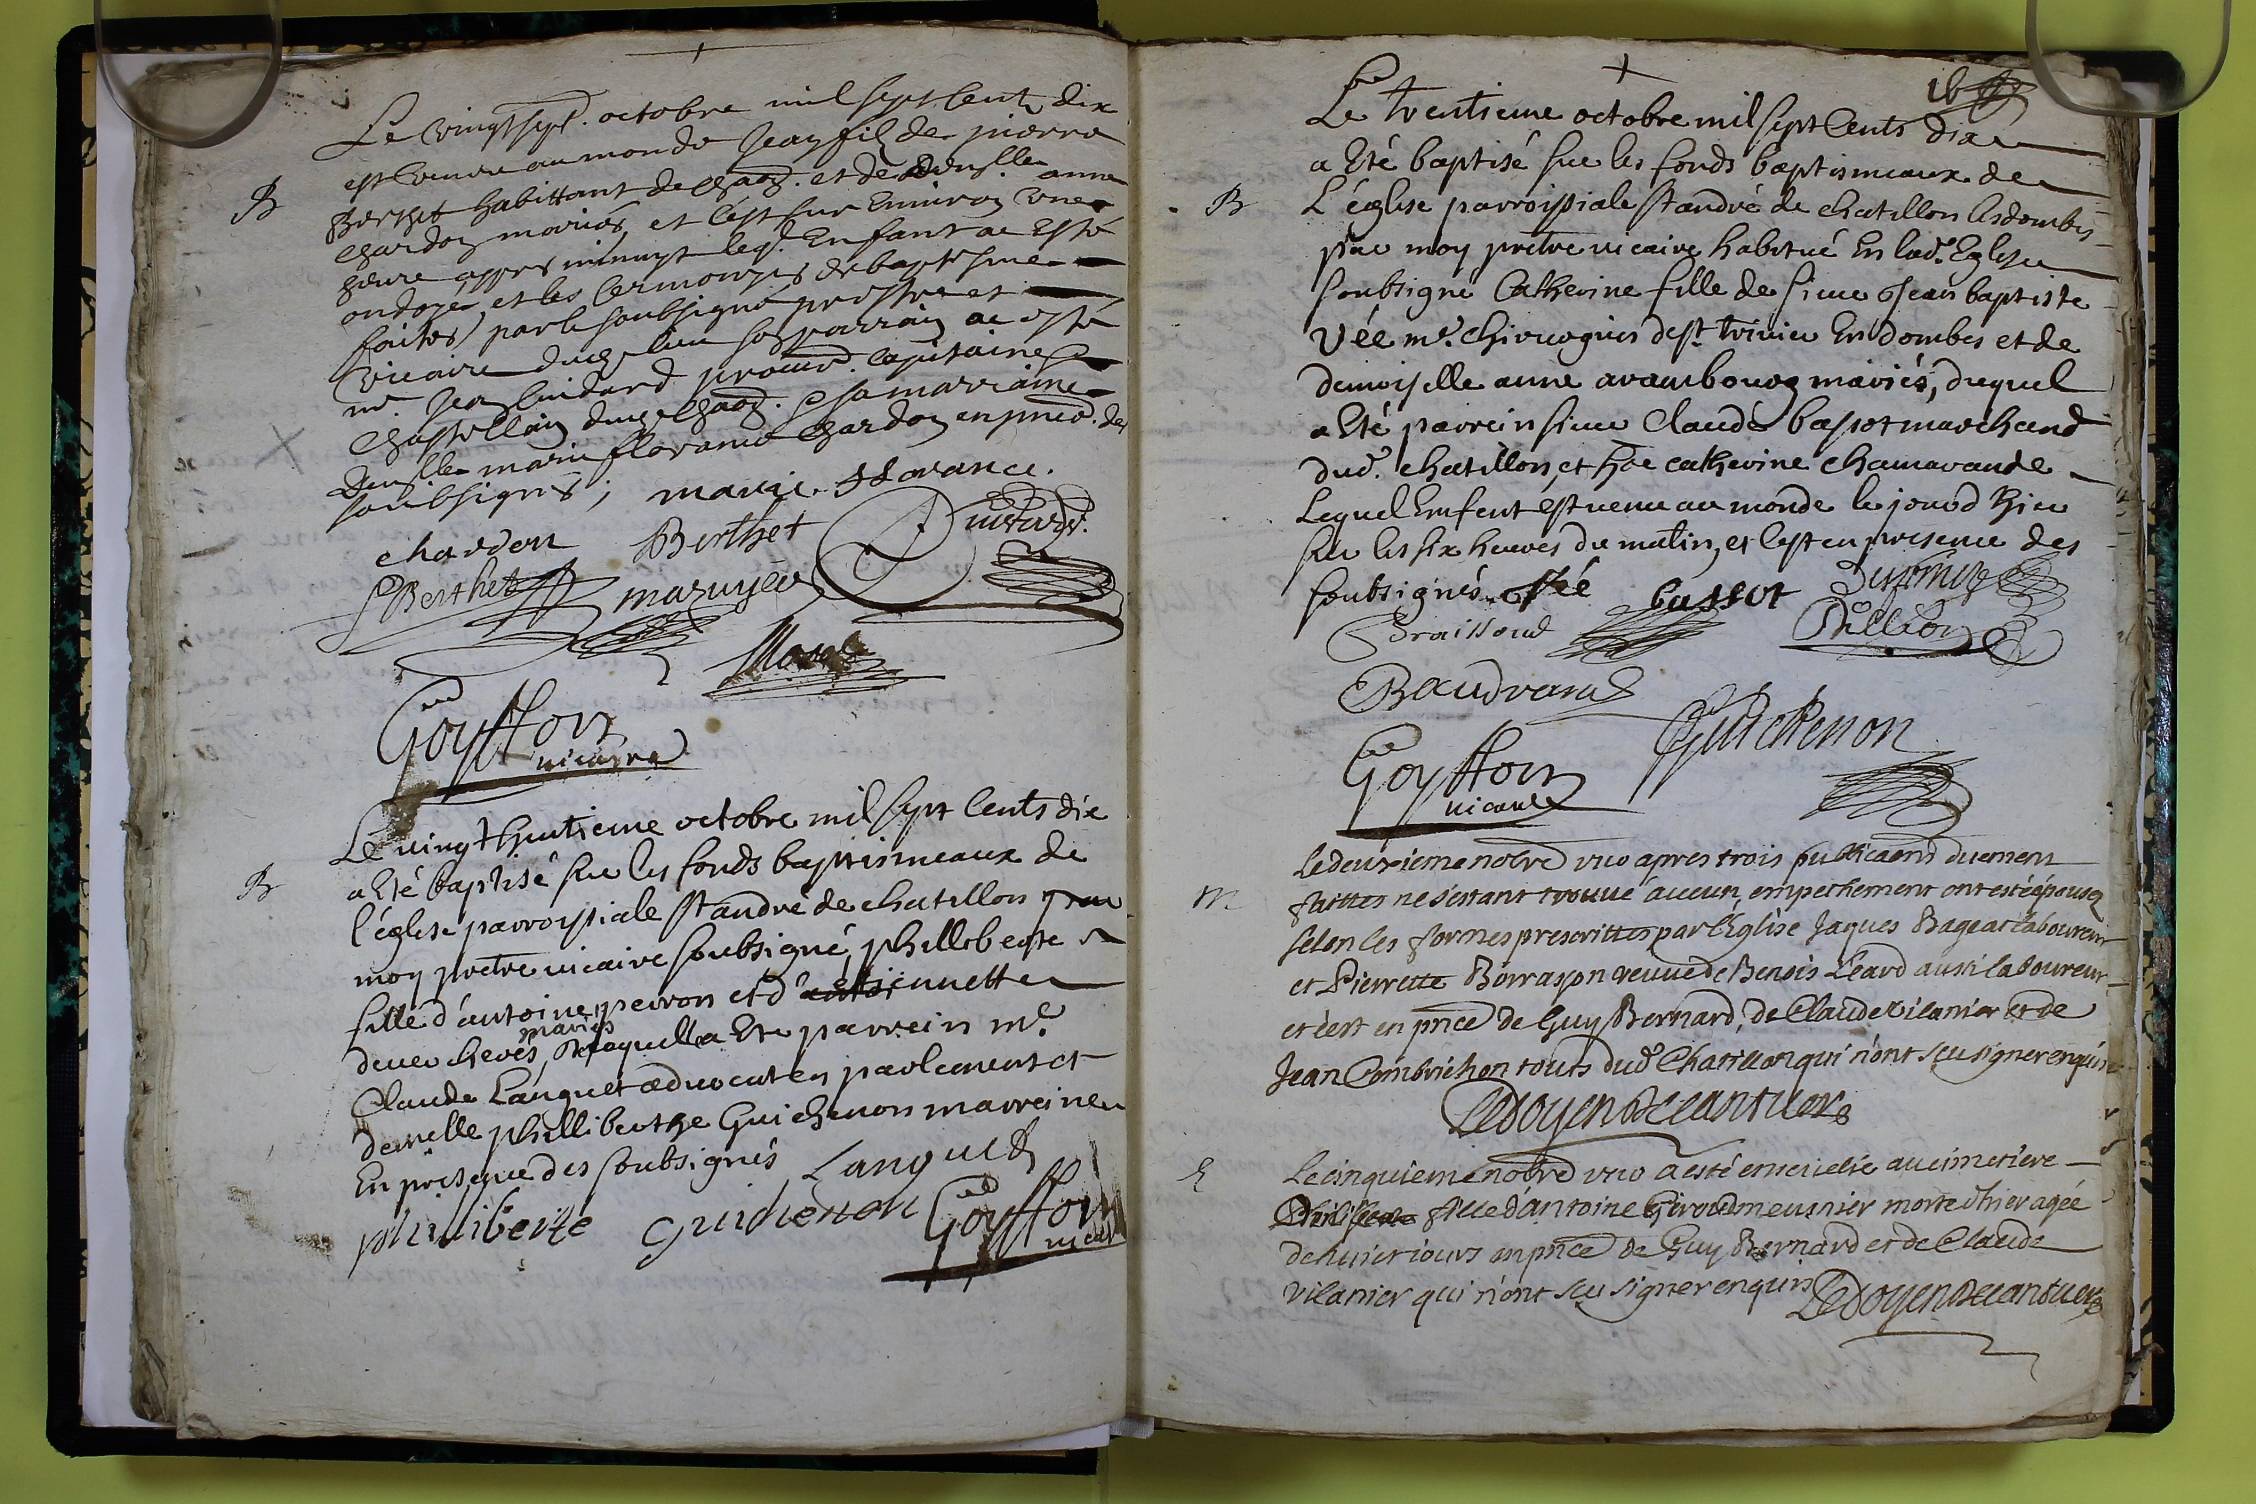 Le vingt sept. octobre mil sept cent dix
est venu au monde Jean filz de pierre
B
Berthet habittant de chaõn. et de dem.lle anne
chardon mariés, et c'est sur Environ une
heure appres minuyt leql. Enfant a Esté
ondoyé, et les ceremonyes de baptesme
faites, par le soubsigné prestre et
vicaire dudt lieu son parrain a esté
mr. Jean Guidard procur. capitaine
chastellain dudt chaõn. sa marraine
demlle marie florance chardon en pnce. des
soubsignés; marie florance
chardon Berthet Guidard.
Berthet mazuyer
Goyffon
vicaire
Le vingt huitieme octobre mil sept cents dix
B
a Eté baptisé sur les fonds baptismeaux de
l'église parroissiale st andré de chatillon par
moy pretre vicaire soubsigné, phillibert
fille d'antoine perron et d' Etiennette
mariés
deverchere, de laquelle a Ete parrein mr.
Claude Languet advocat en parlement et
demelle philliberthe Guichenon marreine
En présence des soubsignés Languet
philiberte Guichenon Goyffon
vicaire
16
Le trentieme octobre mil sept Cents dix
a Eté baptisé sur les fonds baptismeaux de
B
L'église parroissiale st andré de chatillon lesdombes
par moy pretre vicaire habitué En lad. Eglise
soubsigné Catherine fille de sieur Jean baptiste
Vée mr. chirurgien de st. trivier En dombes et de
demoiselle anne arambourg mariés, duquel
a Eté parrein sieur Claude bassot marchand
dud. chatillon, et hõe catherine chamarande
Lequel Enfent est venu au monde le jourd hier
sur les six heures du matin, et c'est en presence des
soubsignés. Vée bassot
Braissoud Billion
Baudrand
Goyffon Guichenon
vicaire
Le deuxieme nobre viio apres trois publicaons duement
M
faittes ne s'estant trouué aucun empechement ont esté épousez
selon les formes prescrittes par l'Eglise Jaques Bageat laboureur
et Pierrette Borrayon veuve de Benois Léard aussi laboureur
et c'est en pnce de Guy Bernard, de Claude vilanier et de
Jean Combrichon touts dud Chatillon qui n'ont sçu signer enquis
Ledoyen Decantuer
E
Le cinquieme nobre viio a esté enseuelie au cimetiere
fille d'antoine Giroud meunier morte d'hier agée
de huict iours en pnce de Guy Bernard et de Claude
vilanier qui n'ont sçu signer enquis Ledoyen Decantuer